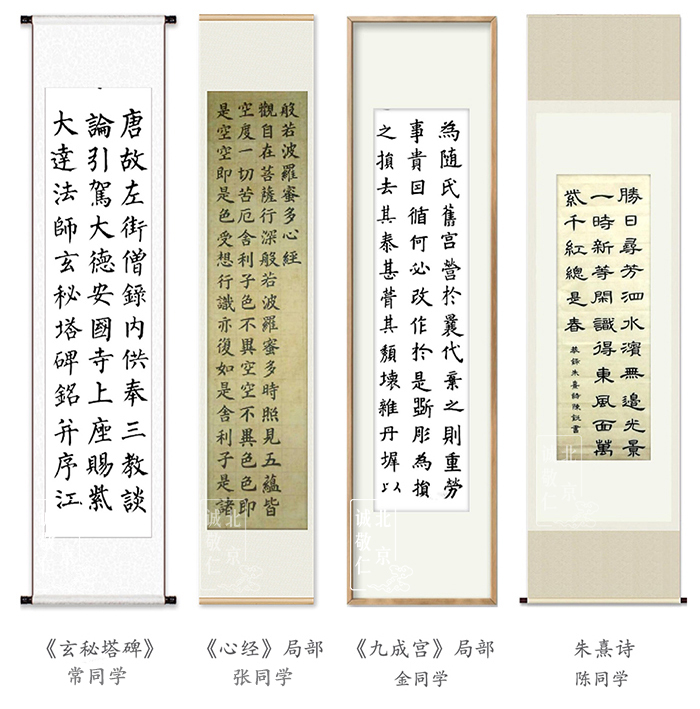 唐故左街僧錄内供奉三教談
論引駕大德安國寺上座賜紫
大達法師玄秘塔碑銘并序江
般若波羅蜜多心經
觀自在菩薩行深般若波羅蜜多時照見五蘊皆
空度一切苦厄舍利子色不異空空不異色色即
是空空即是色受想行識亦復如是舍利子是諸
為随氏舊宮營於曩代棄之則重勞
事貴因循何必改作於是斲彫為損
之損去其泰甚葺其頹壞雜丹墀以
勝日尋芳泗水濱無邊光景
一時新等閑識得東風面萬
紫千紅總是春
恭錄朱熹詩陳書
北京
诚敬仁
北京
诚敬仁
北京
诚敬仁
《玄秘塔碑》
常同学
《心经》局部
张同学
《九成宫》局部
金同学
朱熹诗
陈同学